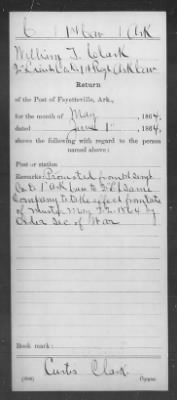 C | 1 Cav | Ark
William T. Clark
2d Lieut Co C, 1st Regt Ark Cav
Return
of the Post of Fayetteville, Ark.,
for the month of May, 1864,
dated June 1st, 1864,
shows the following with regard to the person
named above:
Post or station
Remarks: Promoted from 1st Sergt
Co 1st Ark Cav to 2d Lt same
Company to take effect from date
of Muster May 22 1864 by
Order Sec of War
Book mark:
Curtis Clark
Copyist.